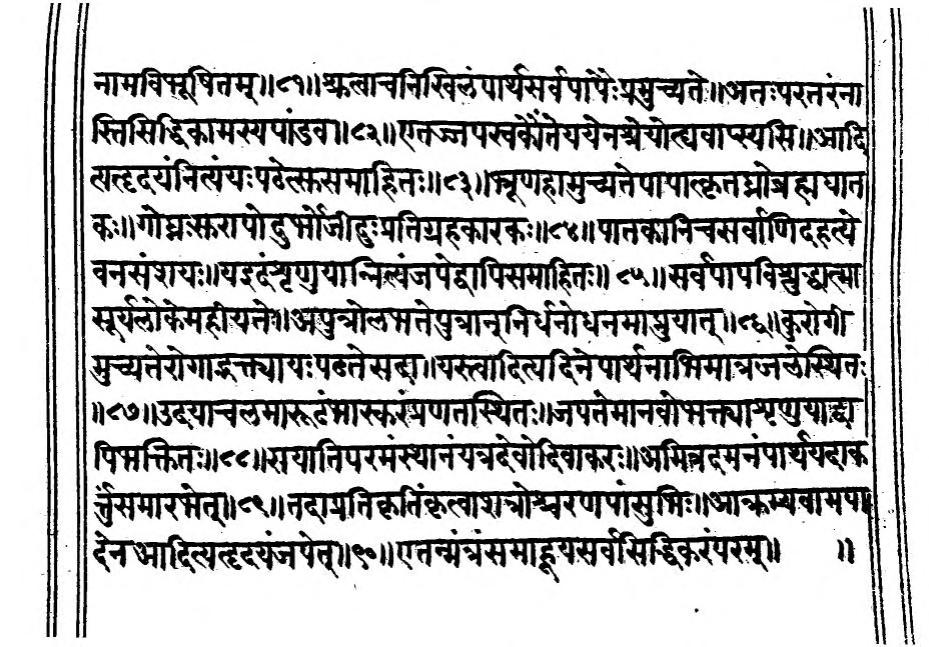 नामविभूषितम्॥८१॥श्रुत्वाचनिखिलंपार्थसर्वपापैःप्रमुच्यते॥अतःपरतरंना
स्तिसिद्धिकामस्यपांडव॥८२॥एतज्जपस्वकौंतेययेनश्रेयोत्द्यवाप्स्यसि॥आदि
त्यत्दृदयंनित्यंयःपठेत्सुसमाहितः॥८३॥भ्रूणहामुच्यतेपापात्कृतघ्नोब्रह्मघात
कः॥गोघ्नःसुरापोदुर्भोजीदुःप्रतिग्रहकारकः॥८४॥पातकानिचसर्वाणिदहत्ये
वनसंशयः॥यइदंशृणुयान्नित्यंजपेद्वापिसमाहितः॥८५॥सर्वपापविशुद्धात्मा
सूर्यलोकेमहीयते॥अपुत्रोलभतेपुत्रान्निर्धनोधनमाप्नुयात्॥८६॥कुरोगी
मुच्यतेरोगाद्भक्त्यायःपठतेसदा॥यस्त्वादित्यदिनेपार्थनाभिमात्रजलेस्थितः
॥८७॥उदयाचलमारूढंभास्करंप्रणतस्थितः॥जपतेमानवोभक्त्याशृणुयाद्वा
पिभक्तितः॥८८॥सयातिपरमंस्थानंयत्रदेवोदिवाकरः॥अमित्रदमनंपार्थयदाक
र्त्तुंसमारभेत्॥८९॥तदाप्रतिकृतिंकृत्वाशत्रोश्चरणपांसुभिः॥आक्रम्यवामपा
देनआदित्यत्दृदयंजपेत्॥९०॥एतन्मंत्रंसमाहूयसर्वसिद्धिकरंपरम्॥ ॥